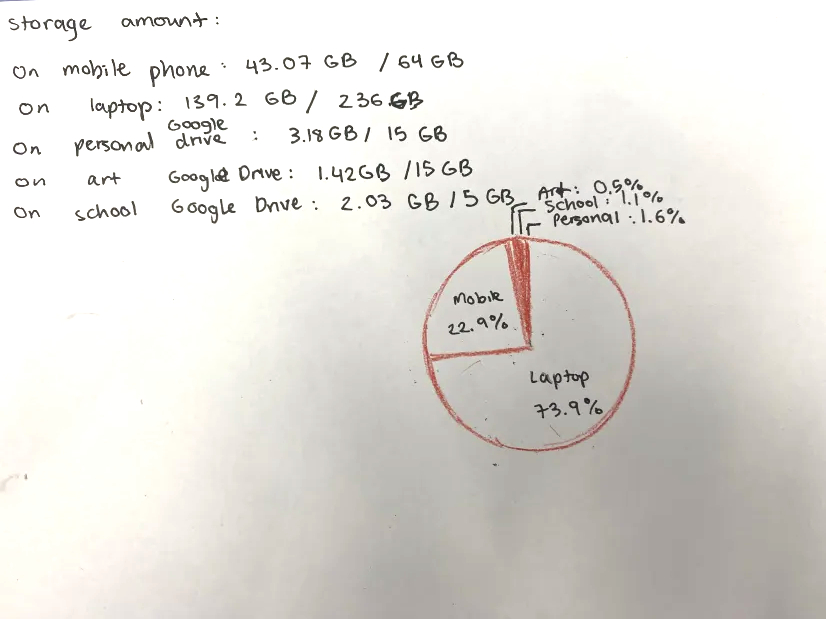 storage amount:
On mobile phone: 43.07 GB / 64 GB
On laptop: 139.2 GB / 236 GB
On personal Google drive: 3.18 GB / 15 GB
On art Google Drive: 1.42GB / 15 GB
On school Google Drive: 2.03 GB / 5 GB
Art: 0.5%
School: 1.1%
Personal: 1.6%
Mobile
22.9%
Laptop
73.9%